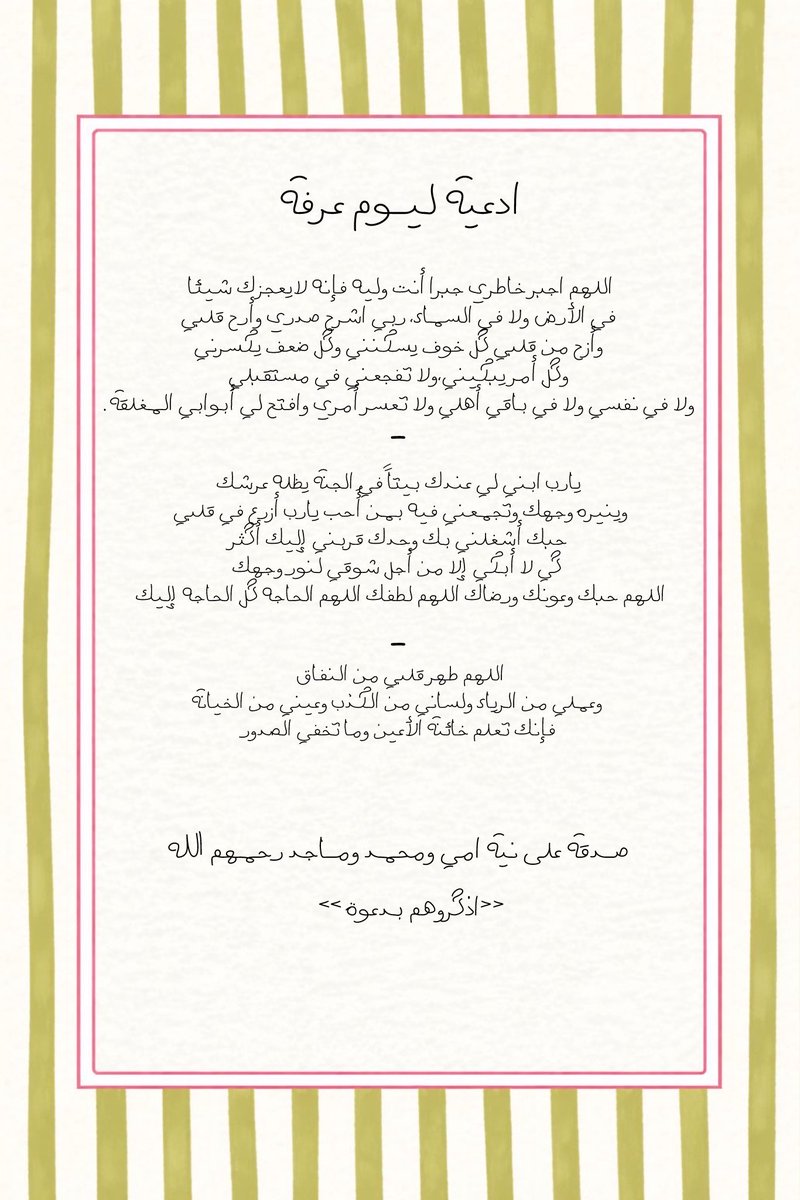 ادعية ليوم عرفة
اللهم اجبر خاطري جبرا أنت وليه فإنه لايعجزك شيئا
في الأرض ولا في السماء، ربي اشرح صدري وأرح قلبي
وأزح من قلبي كل خوف يسكنني وكل ضعف يكسرني
وكل أمر يبكيني،ولا تفجعني في مستقبلي
ولا في نفسي ولا في باقي أهلي ولا تعسر أمري وافتح لي أبوابي المغلقة.
–
يارب ابني لي عندك بيتاً في الجنة يظله عرشك
وينيره وجهك وتجمعني فيه بمن أحب يارب أزرع في قلبي
حبك أشغلني بك وحدك قربني إليك أكثر
كي لا أبكي إلا من أجل شوقي لنور وجهك
اللهم حبك وعونك ورضاك اللهم لطفك اللهم الحاجه كل الحاجه إليك
–
اللهم طهر قلبي من النفاق
وعملي من الرياء ولساني من الكذب وعيني من الخيانة
فإنك تعلم خائنة الأعين وما تخفي الصدور
صدقة على نية امي ومحمد وماجد رحمهم الله
<<اذكروهم بدعوة>>